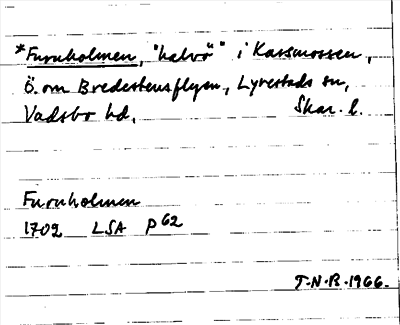 *Furuholmen, "halvö" i Kassmossen,
Ö. om Bredestensflyen, Lyrestads sn,
Vadsbo hd. Skar. l.
Furuholmen
1702 LSA P 62
T.N.R. 1966.